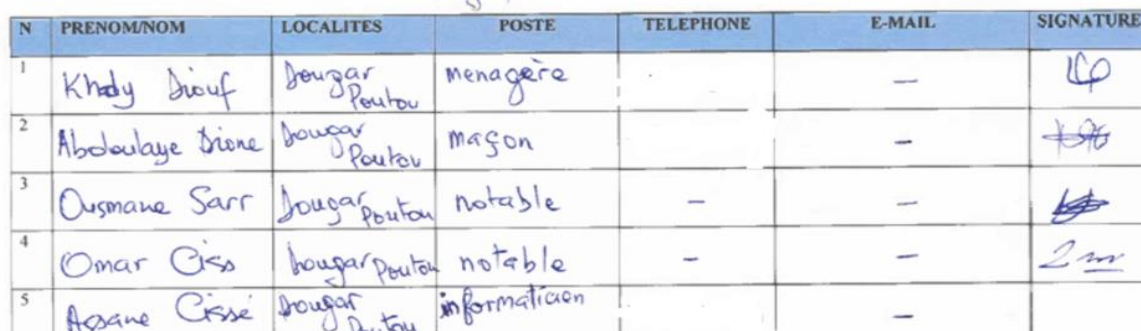 N PRENOM/NOM LOCALITES POSTE TELEPHONE E-MAIL SIGNATURE
1 Khady Diouf Dougar Poutou menagère –
2 Abdoulaye Dione Dougar Poutou maçon –
3 Ousmane Sarr Dougar Poutou notable – –
4 Omar Ciss Dougar Poutou notable – –
5 Assane Cissé Dougar Poutou informaticien –